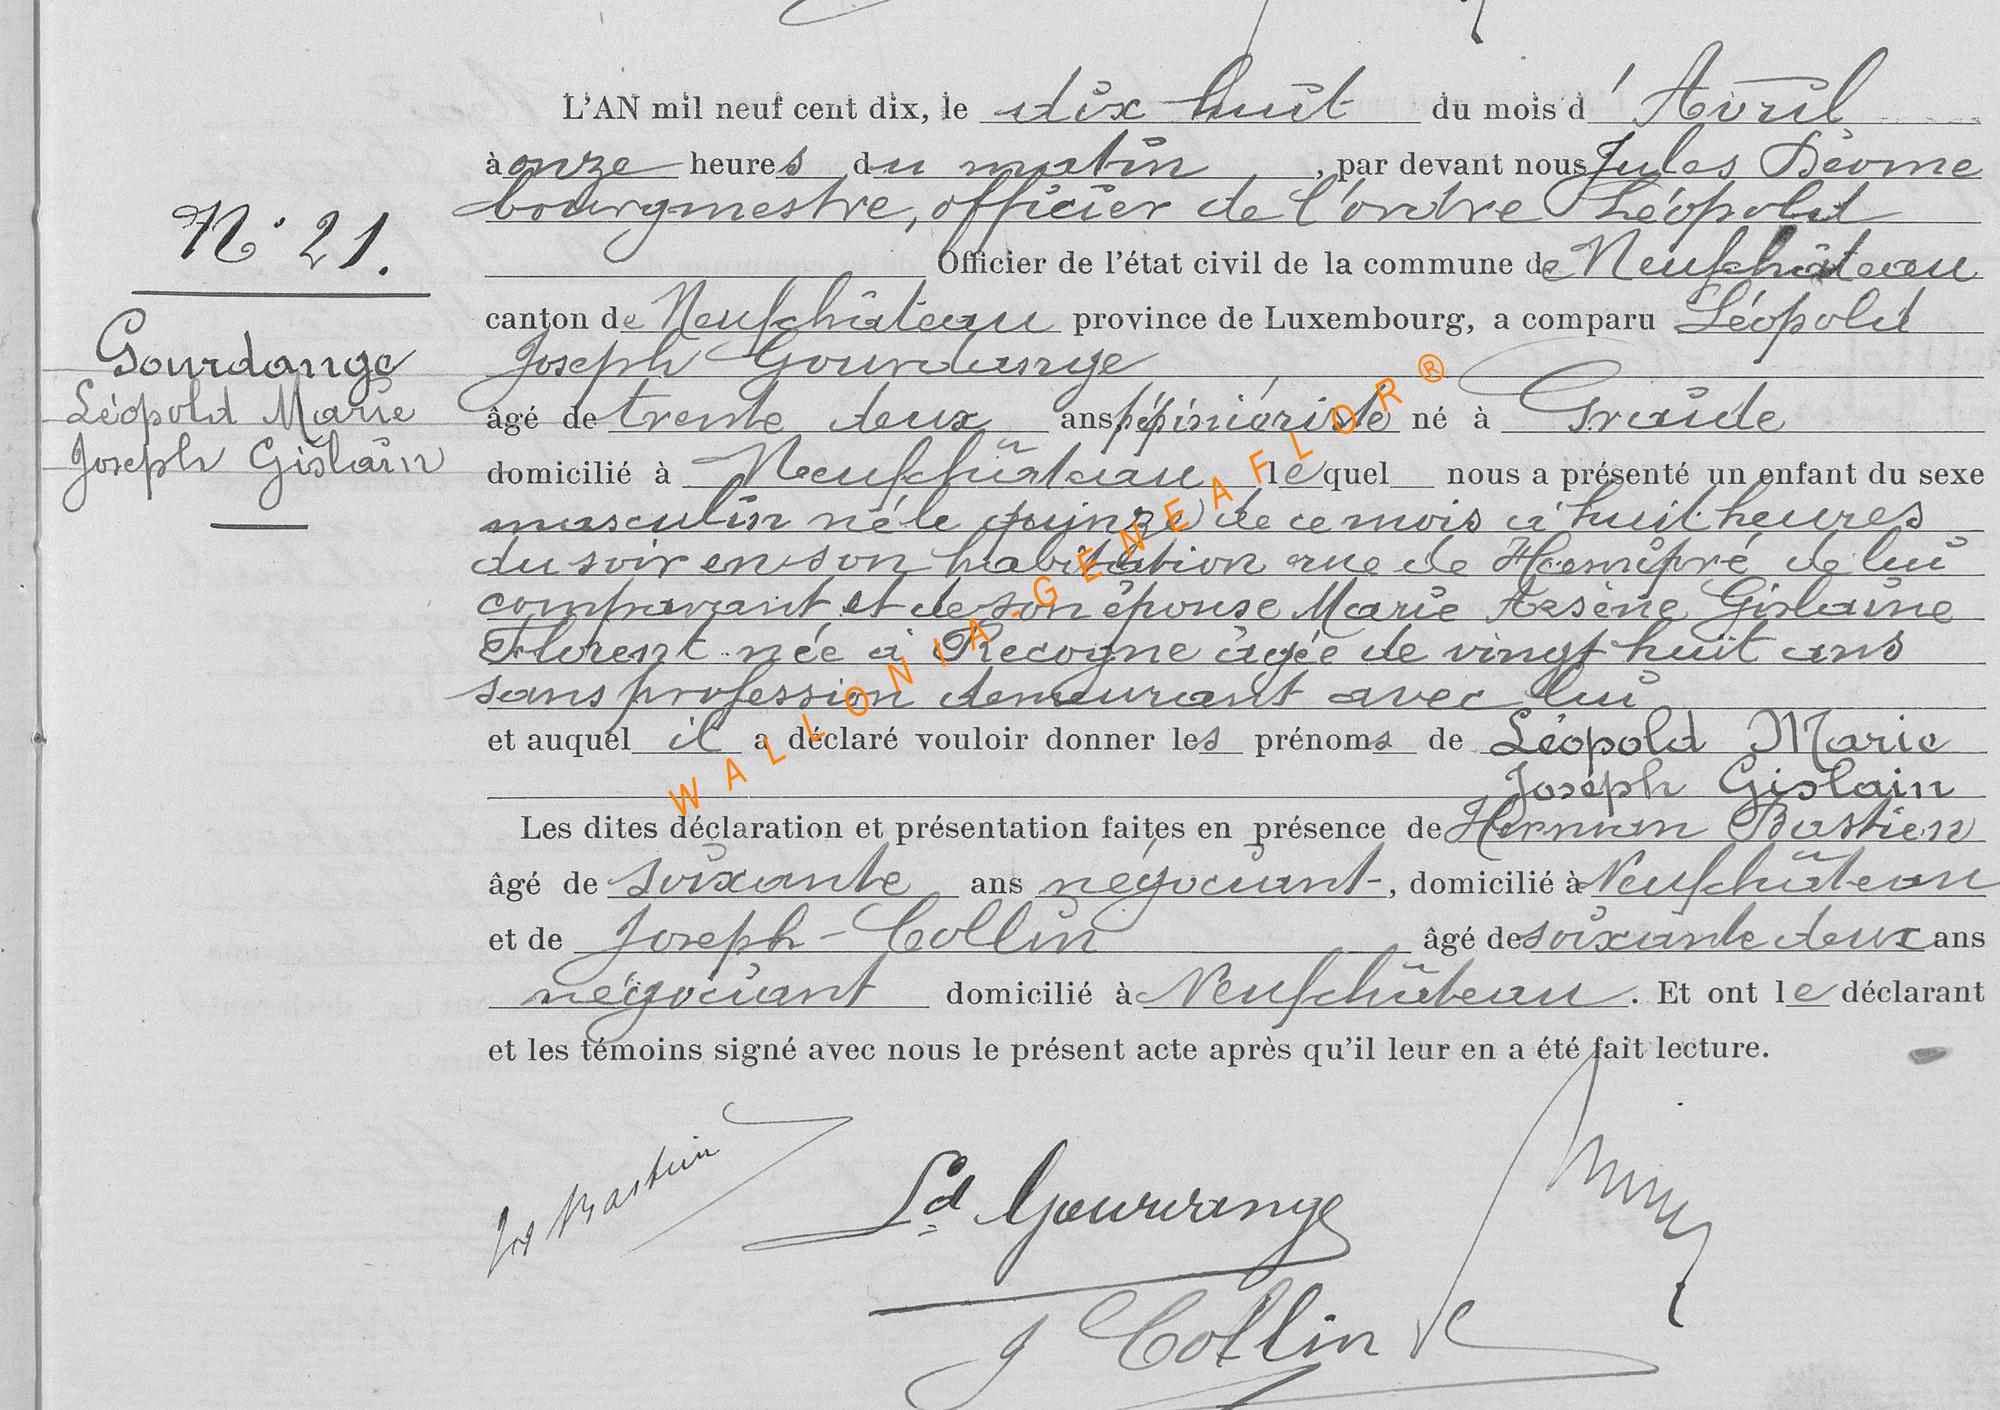 N° 21.
Gourdange
Léopold Marie
Joseph Gislain
L'AN mil neuf cent dix, le dix huit du mois d'Avril
à onze heures du matin, par devant nous Jules Déome
bourgmestre, officier de l'ordre Léopold
Officier de l'état civil de la commune de Neufchâteau
canton de Neufchâteau province de Luxembourg, a comparu Léopold
Joseph Gourdange
âgé de trente deux ans pépiniériste né à Graide
domicilié à Neufchâteau lequel nous a présenté un enfant du sexe
masculin né le quinze de ce mois à huit heures
du soir en son habitation rue de Hamipré de lui
comparant et de son épouse Marie Arsène Gislaine
Florent née à Recogne âgée de vingt huit ans
sans profession demeurant avec lui
et auquel il a déclaré vouloir donner les prénoms de Léopold Marie
Joseph Gislain
Les dites déclaration et présentation faites en présence de Herman Bastien
âgé de soixante ans négociant, domicilié à Neufchâteau
et de Joseph Collin âgé de soixante deux ans
négociant domicilié à Neufchâteau. Et ont le déclarant
et les témoins signé avec nous le présent acte après qu'il leur en a été fait lecture.
Bastien
Ld Gourdange
J Collin
WALLONIA-GENEAFLOR®